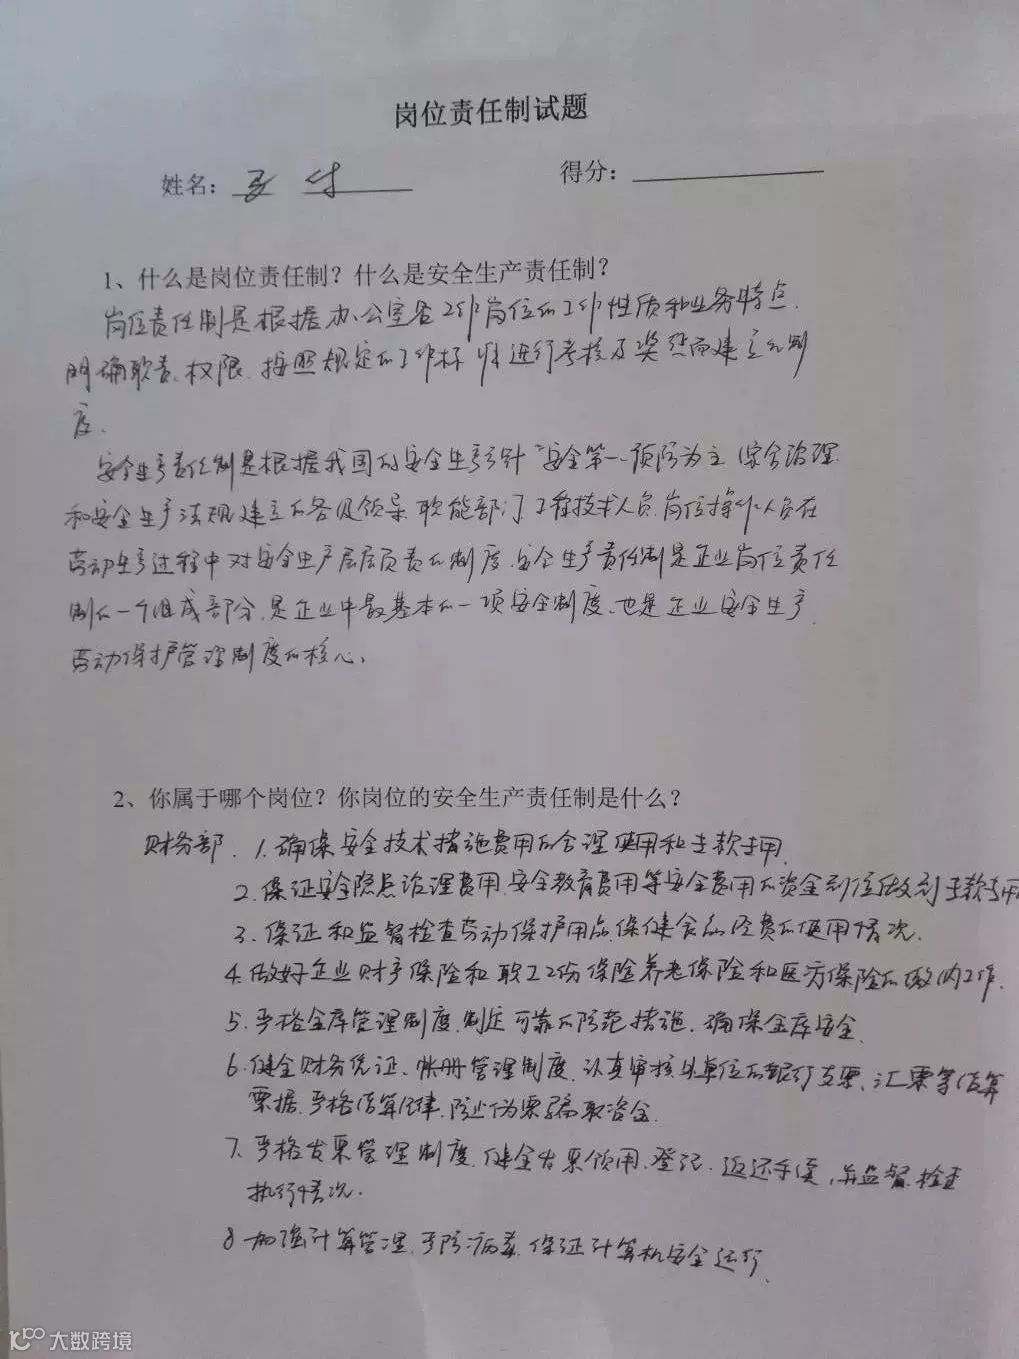 岗位责任制试题
姓名： 得分：
1、什么是岗位责任制？什么是安全生产责任制？
岗位责任制是根据办公室各工作岗位的工作性质和业务特点，
明确职责、权限、按照规定的工作标准进行考核及奖惩而建立的制
度。
安全生产责任制是根据我国的安全生产方针"安全第一、预防为主 综合治理
和安全生产法规建立的各级领导 职能部门 工程技术人员 岗位操作人员在
劳动生产过程中对安全生产层层负责的制度。安全生产责任制是企业岗位责任
制的一个组成部分，是企业中最基本的一项安全制度，也是企业安全生产
劳动保护管理制度的核心。
2、你属于哪个岗位？你岗位的安全生产责任制是什么？
财务部. 1. 确保安全技术措施费用的合理使用和专款专用.
2. 保证安全隐患治理费用、安全教育费用等安全费用的资金到位做到专款专用
3. 保证和监督检查劳动保护用品保健食品经费的使用情况.
4. 做好企业财产保险和职工工伤保险养老保险和医疗保险的缴纳工作.
5. 严格金库管理制度，制定可靠的防范措施，确保金库安全.
6. 健全财务凭证、帐册管理制度，认真审核 单位的银行支票、汇票等结算
票据，严格结算纪律，防止伪票骗取资金.
7. 严格发票管理制度，健全发票领用、登记、返还手续，并监督 检查
执行情况.
8 加强计算管理，预防病毒，保证计算机安全运行.
大数跨境